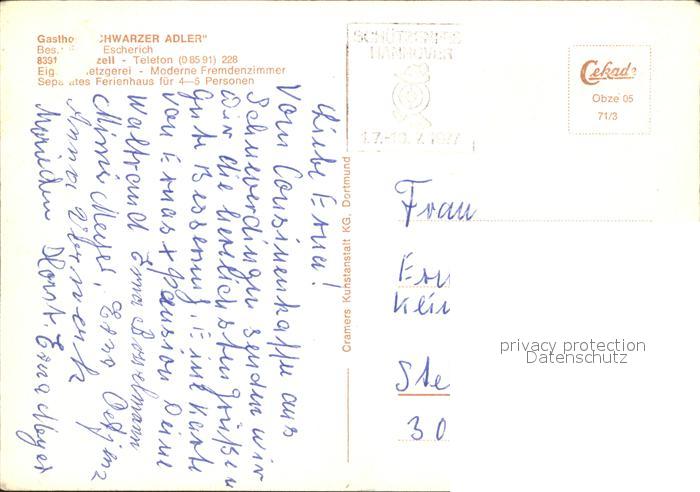 Gastho CHWARZER ADLER"
Bes. Escherich
8391 zell - Telefon (0 85 91) 228
Eig etzgerei - Moderne Fremdenzimmer
Sepa ates Ferienhaus für 4—5 Personen
SCHÜTZENFEST
HANNOVER
1.7.-10.7.1977
Cekade
Obze 05
71/3
Cramers Kunstanstalt KG, Dortmund
Liebe Erna!
Vom Cousinenkaffe aus
Schneverdingen senden wir
wir die herzlichsten Grüßen
gute Besserung. Eine Karte
von Ernas Pension Deine
Waltraud Erna Bosselmann
Mimi Meyer, Erna
Anna
Horst. Erna Meyer
Frau
Ern
Klein
Ste
30
privacy protection
Datenschutz